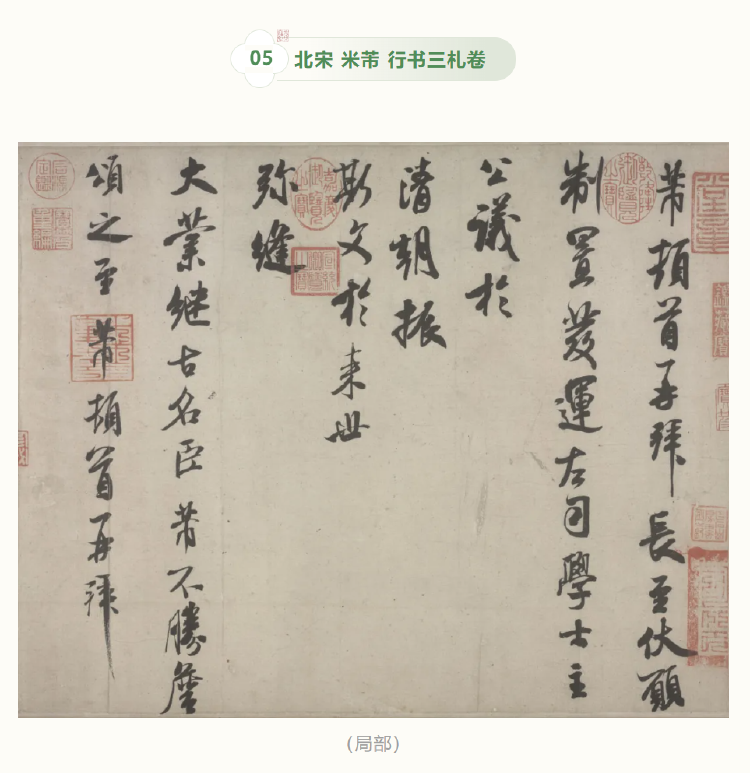 05 北宋 米芾 行书三札卷
芾頓首再拜長至伏願
制置發運左司學士主
公議於
清朝振
斯文於来世
弥縫
大業継古名臣芾不勝詹
頌之至芾頓首再拜
(局部)